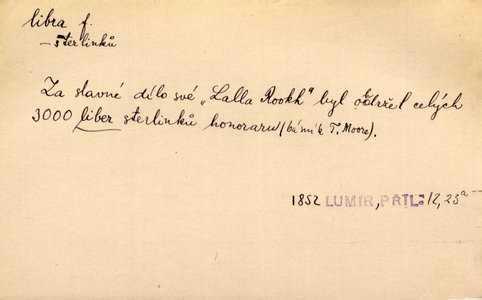 libra f.
– sterlinků
Za slavné dílo své „Lalla Rookh" byl obdržel celých
3000 liber sterlinků honoraru (básník T. Moore).
1852 LUMÍR, PŘÍL. 12, 25a